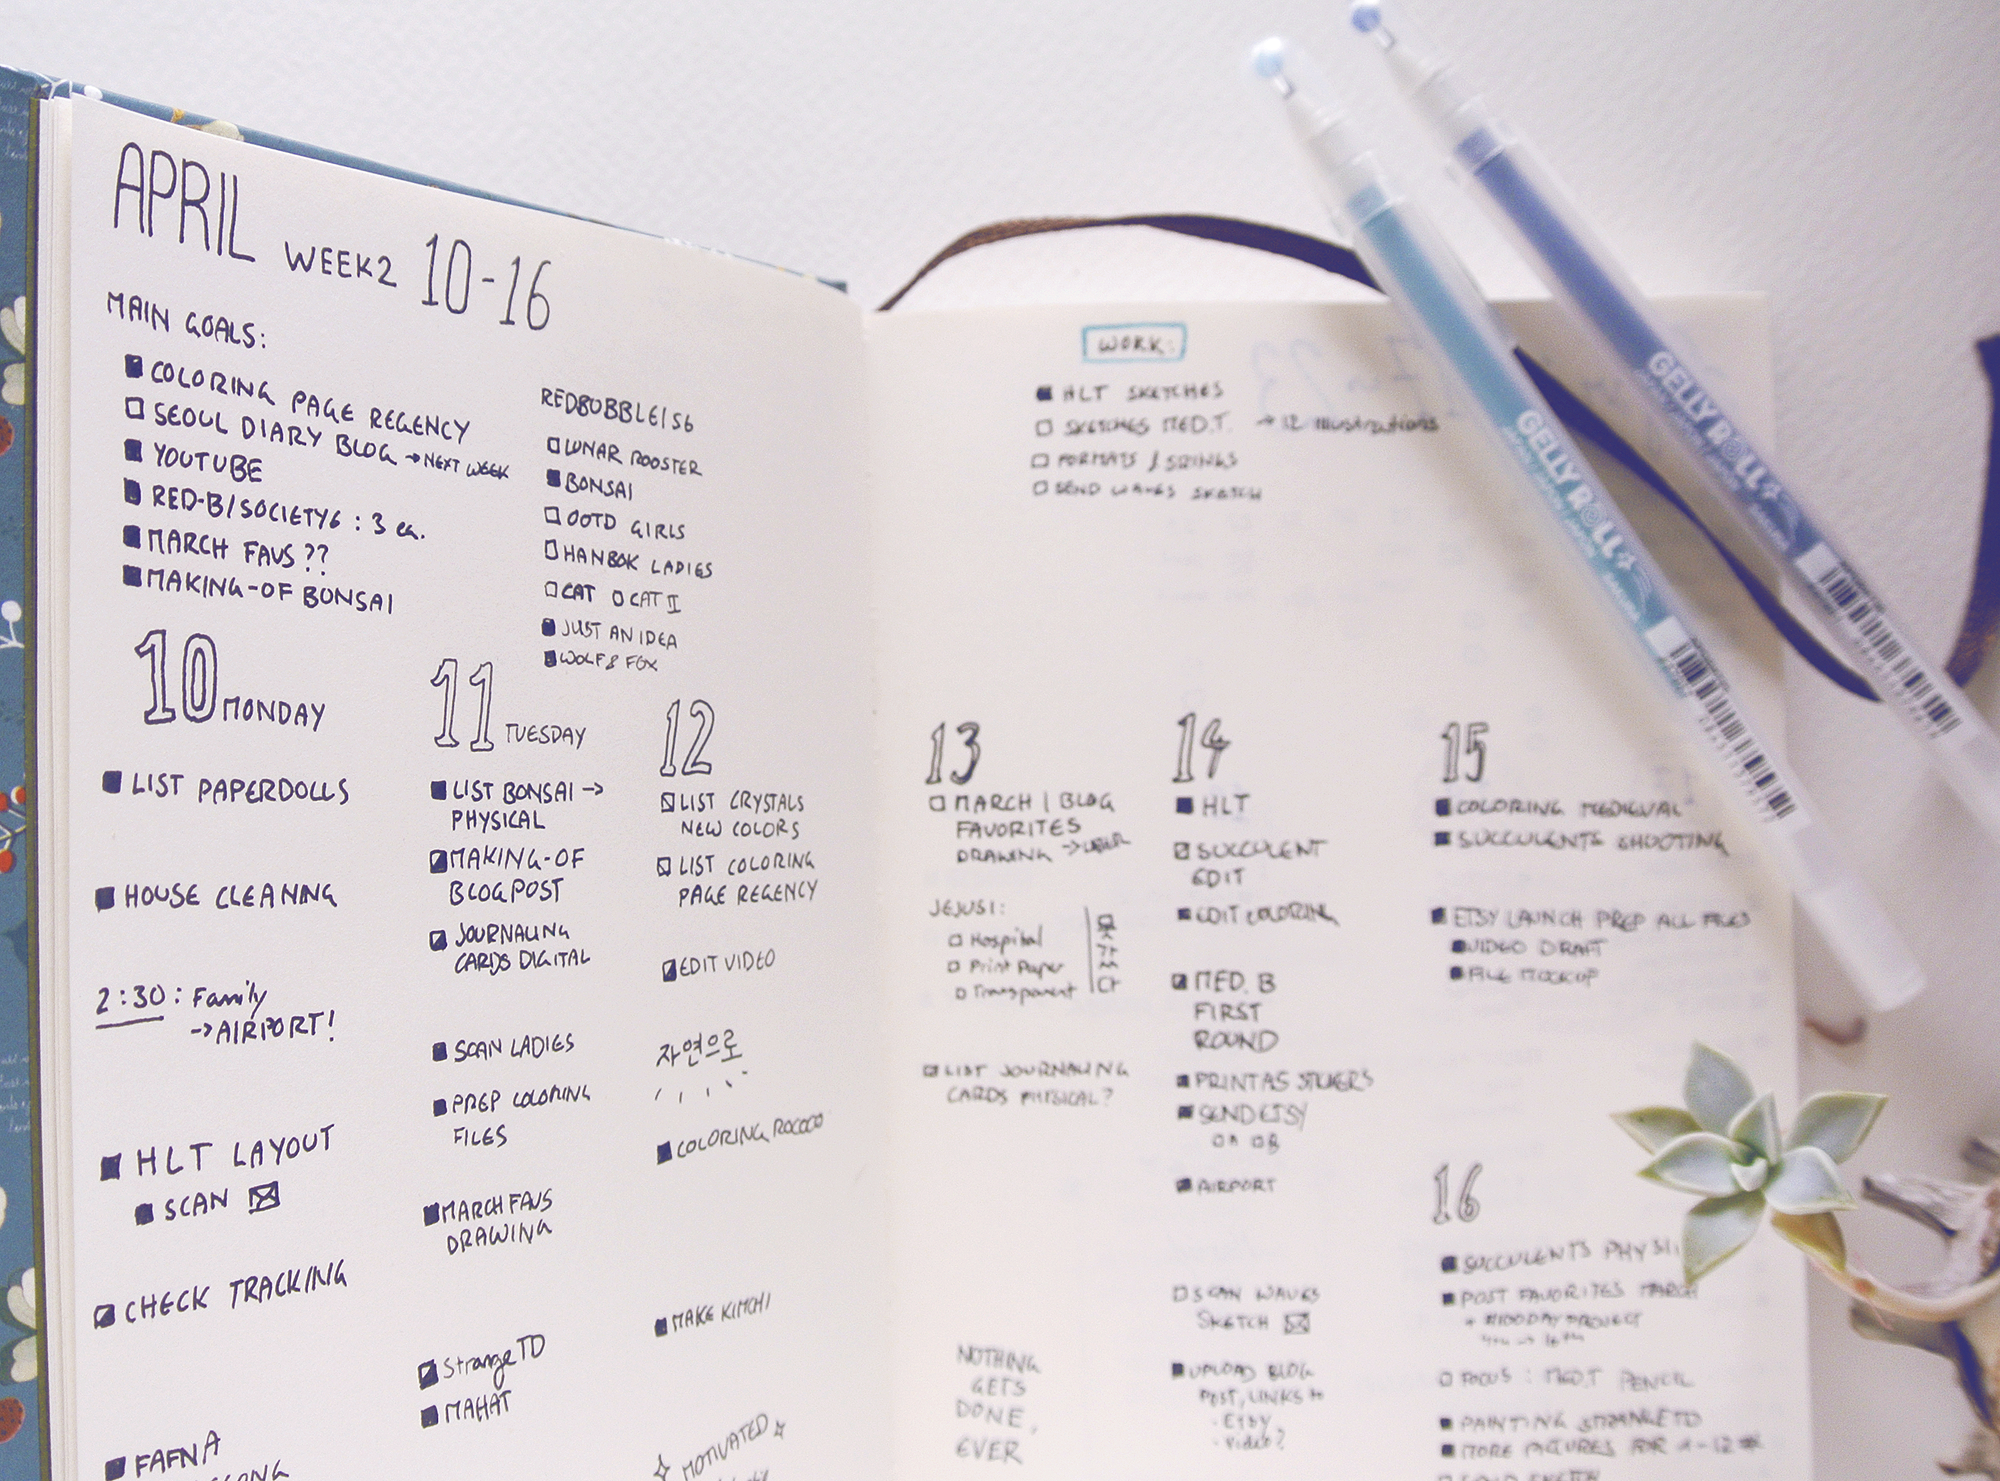 APRIL WEEK2 10-16
MAIN GOALS:
COLORING PAGE REGENCY
SEOUL DIARY BLOG → NEXT WEEK
YOUTUBE
RED-B/SOCIETY6 : 3 ea.
MARCH FAVS ??
MAKING-OF BONSAI
REDBUBBLE/S6
LUNAR ROOSTER
BONSAI
OOTD GIRLS
HANBOK LADIES
CAT CAT II
JUST AN IDEA
WOLF & FOX
10 MONDAY
LIST PAPERDOLLS
HOUSE CLEANING
2:30: Family
→AIRPORT!
HLT LAYOUT
SCAN
CHECK TRACKING
FAFNA
11 TUESDAY
LIST BONSAI →
PHYSICAL
MAKING-OF
BLOGPOST
JOURNALING
CARDS DIGITAL
SCAN LADIES
PREP COLORING
FILES
MARCH FAVS
DRAWING
StrangeTD
MAHAT
12
LIST CRYSTALS
NEW COLORS
LIST COLORING
PAGE REGENCY
EDIT VIDEO
자연으로
COLORING ROCOCO
MAKE KIMCHI
MOTIVATED
WORK:
HLT SKETCHES
SKETCHES MED.T. → 12 illustrations
FORMATS /
SEND WAVES SKETCH
13
MARCH | BLOG
FAVORITES
DRAWING → LATER
JEJUSI:
Hospital
Print Paper
Transparent
LIST JOURNALING
CARDS PHYSICAL?
NOTHING
GETS
DONE,
EVER
14
HLT
SUCCULENT
EDIT
EDIT COLORING
MED. B
FIRST
ROUND
PRINT AS STICKERS
SEND ETSY
AIRPORT
SCAN WAVES
SKETCH
UPLOAD BLOG
POST, LINKS to
· Etsy
· Video?
15
COLORING MEDIEVAL
SUCCULENTS SHOOTING
ETSY LAUNCH PREP ALL FILES
VIDEO DRAFT
FILE MOCKUP
16
SUCCULENTS
POST FAVORITES MARCH
+ #100DAYPROJECT
FOCUS : MED.T PENCIL
PAINTING STRANGETD
MORE PICTURES FOR
GELLY ROLL
GELLY ROLL